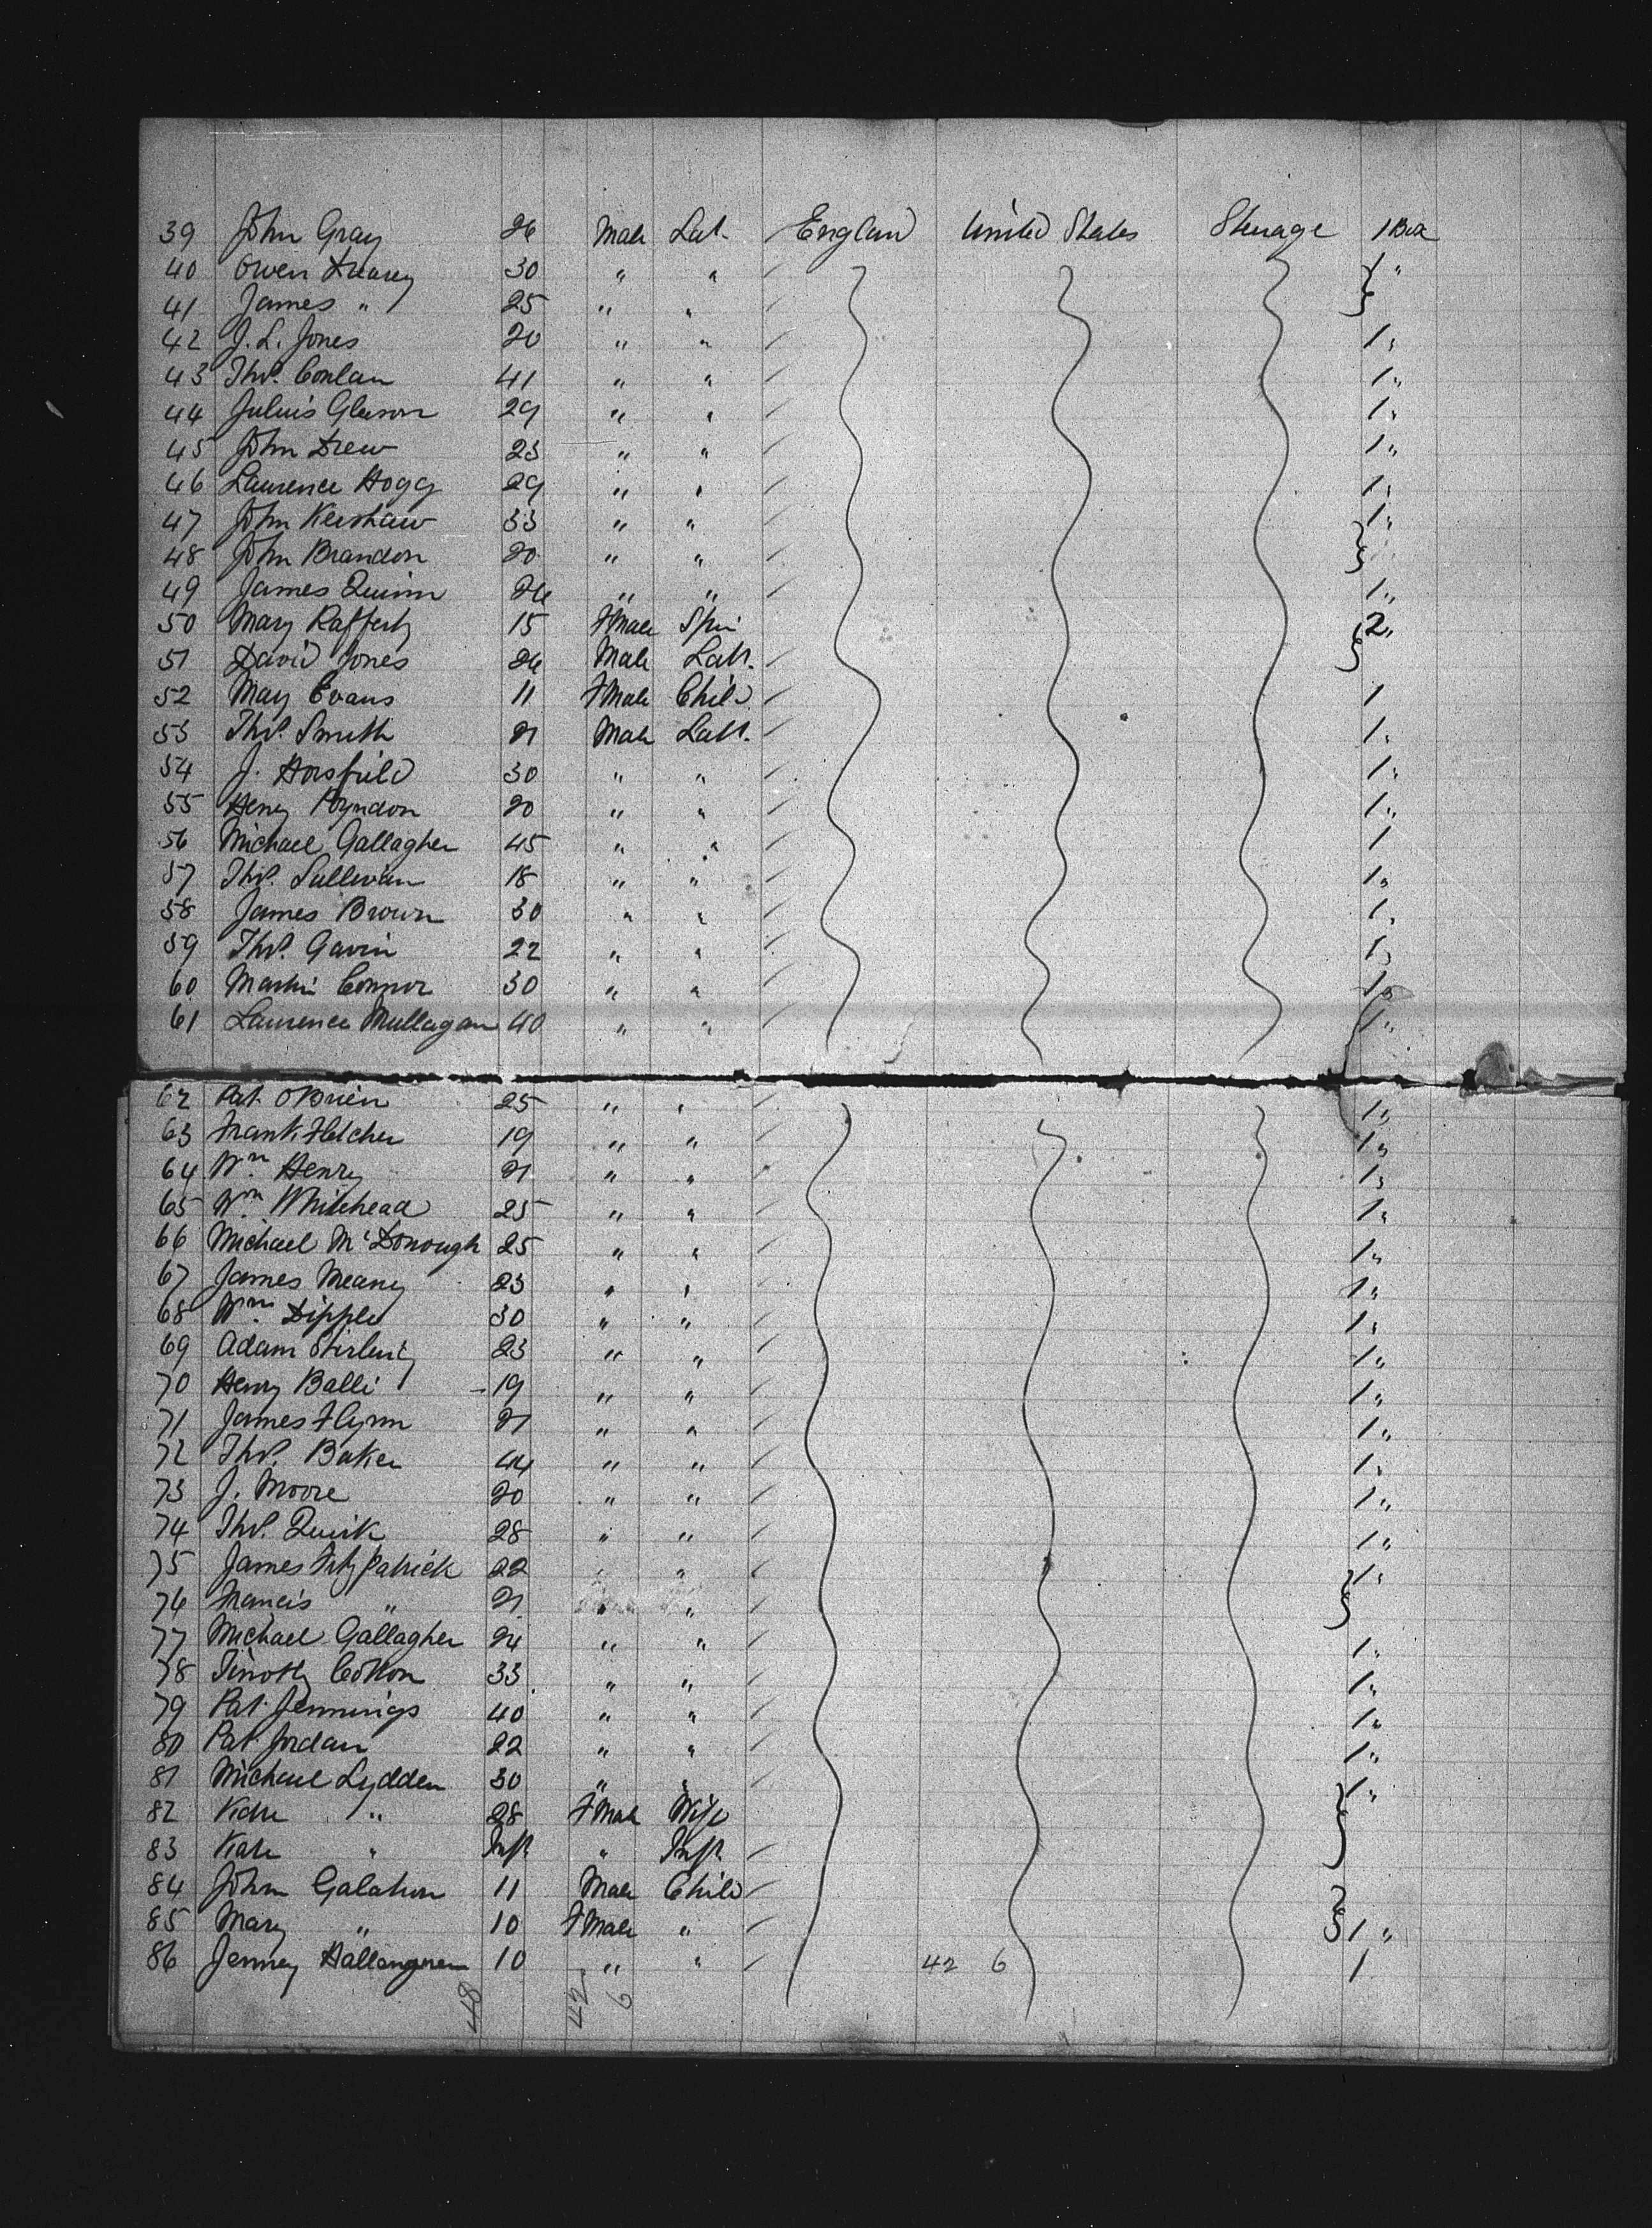 39 John Gray 26 Male Lab. England United States Steerage 1 Box
40 Owen Drurey 30 " " 1 "
41 James " 25 " "
42 J. L. Jones 20 " " 1 "
43 Thos. Conlan 41 " " 1 "
44 Julius Gleeson 29 " " 1 "
45 John Drew 23 " " 1 "
46 Laurence Hogg 29 " " 1 "
47 John Kershaw 33 " " 1 "
48 John Brandon 20 " "
49 James Quinn 26 " " 1 "
50 Mary Rafferty 15 FMale Spin 2 "
51 David Jones 26 Male Labr.
52 May Evans 11 FMale Child 1
53 Thos. Smith 21 Male Labr. 1 "
54 J. Horsfield 30 " " 1 "
55 Henry Poyndon 20 " " 1 "
56 Michael Gallagher 45 " " 1
57 Thos. Sullivan 18 " " 1 "
58 James Brown 30 " " 1 "
59 Thos. Gavin 22 " " 1 "
60 Martin Connor 30 " " 1 "
61 Laurence Mullagan 40 " " 1 "
62 Pat. OBrien 25 " " 1 "
63 Frank Fletcher 19 " " 1 "
64 Wm. Henry 21 " " 1 "
65 Wm. Whitehead 25 " " 1 "
66 Michael McDonough 25 " " 1 "
67 James Meany 23 " " 1 "
68 Wm. Dipple 30 " " 1 "
69 Adam Stirling 23 " " 1 "
70 Henry Balli 19 " " 1 "
71 James Flynn 21 " " 1 "
72 Thos. Baker 44 " " 1 "
73 J. Moore 20 " " 1 "
74 Thos. Quirk 28 " " 1 "
75 James Fitzpatrick 22 " " 1 "
76 Francis " 21 " "
77 Michael Gallagher 24 " " 1 "
78 Timothy Cotton 33 " " 1 "
79 Pat. Jennings 40 " " 1 "
80 Pat. Jordan 22 " " 1 "
81 Michael Lydden 30 " " 1 "
82 Kate " 28 FMale Wife
83 Kate " Inft. " Inft.
84 John Galahon 11 Male Child
85 Mary " 10 FMale " 1 "
86 Jenney 10 " " 42 6 1
48 42 6